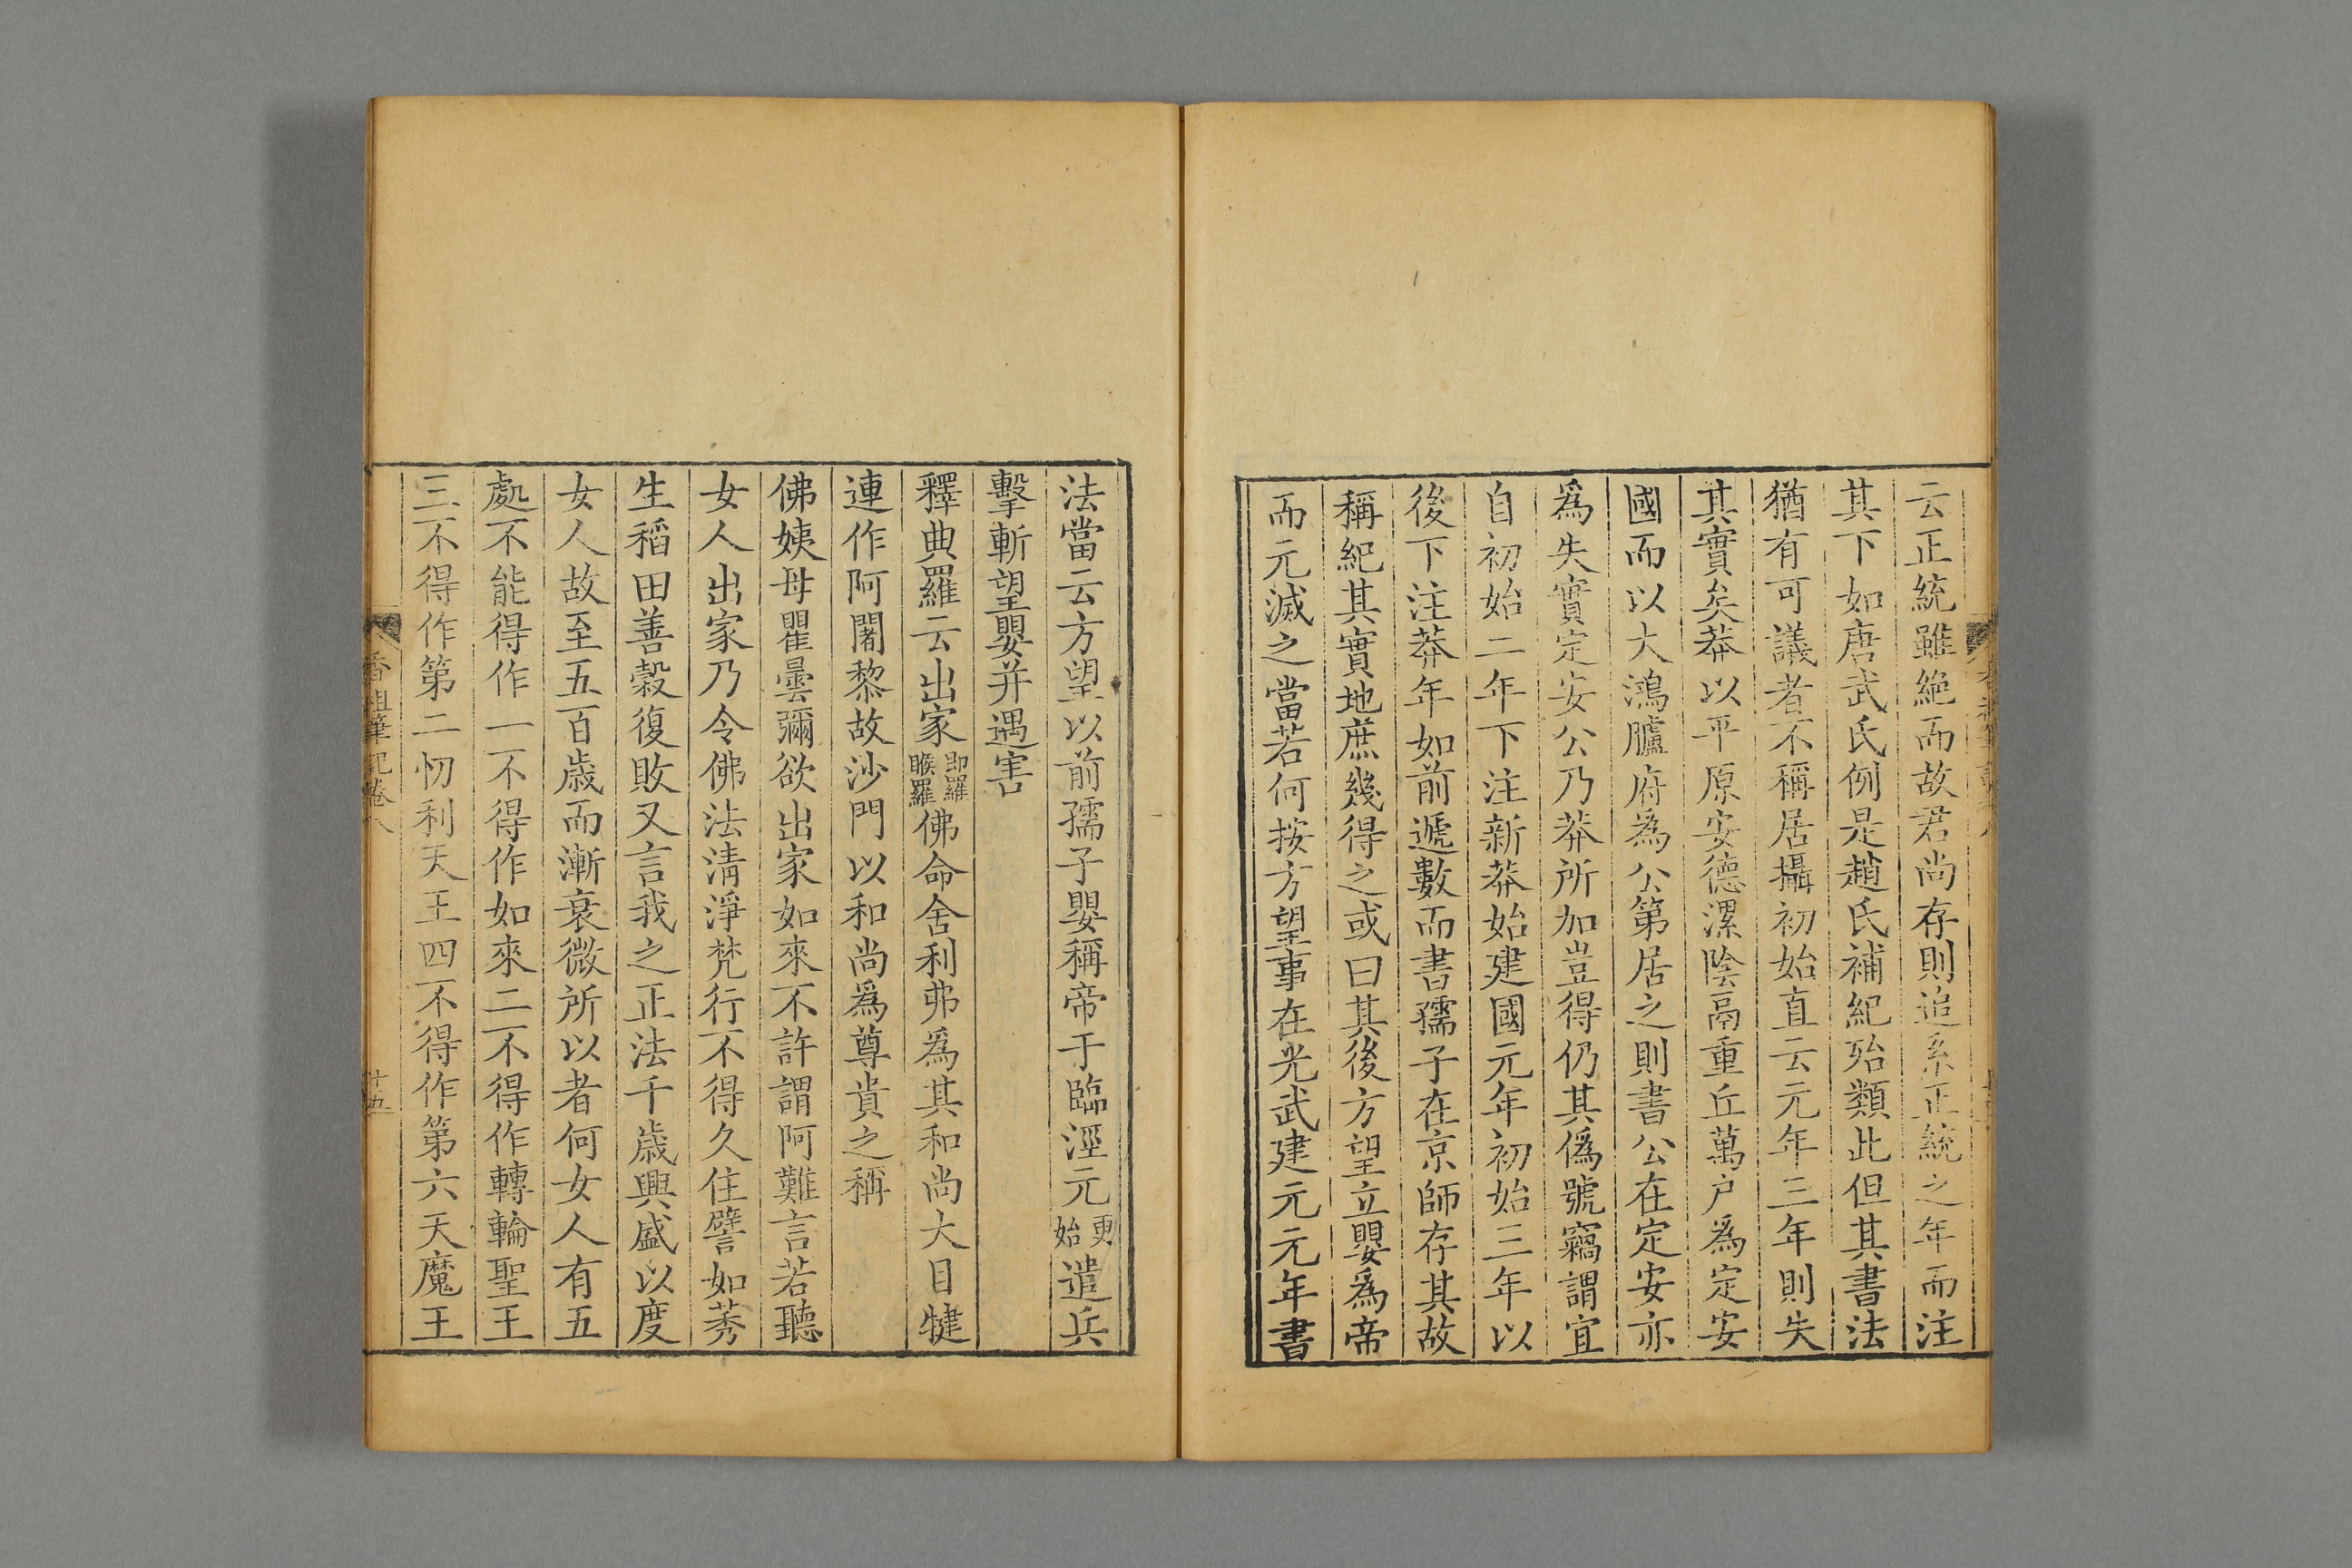 云正統雖絶而故君尚存則追系正統之年而注
其下如唐武氏例是趙氏補紀殆類此但其書法
猶有可議者不稱居攝初始直云元年三年則失
其實矣莽以平原安德漯陰鬲重丘萬户爲定安
國而以大鴻臚府爲公第居之則書公在定安亦
爲失實定安公乃莽所加豈得仍其僞號竊謂宜
自初始二年下注新莽始建國元年初始三年以
後下注莽年如前遞數而書孺子在京師存其故
稱紀其實地庶幾得之或曰其後方望立嬰爲帝
而元滅之當若何按方望事在光武建元元年書
法當云方望以前孺子嬰稱帝于臨涇元更始遣兵
擊斬望嬰并遇害
釋典羅云出家即羅睺羅佛命舍利弗爲其和尚大目犍
連作阿闍黎故沙門以和尚爲尊貴之稱
佛姨母瞿曇彌欲出家如來不許謂阿難言若聽
女人出家乃令佛法淸淨梵行不得久住譬如莠
生稻田善穀復敗又言我之正法千歲興盛以度
女人故至五百歲而漸衰微所以者何女人有五
處不能得作一不得作如來二不得作轉輪聖王
三不得作第二忉利天王四不得作第六天魔王
香祖筆記卷八
十五